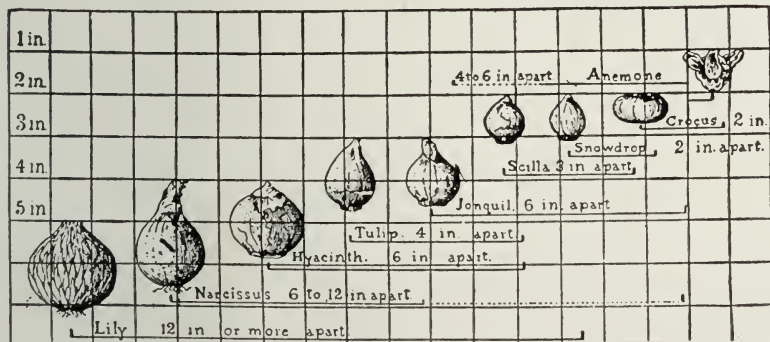 1 in.
2 in.
3 in
4 in
5 in
4 to 6 in apart Anemone
Crocus 2 in.
Snowdrop 2 in. apart.
Scilla 3 in apart
Jonquil. 6 in apart
Tulip. 4 in. apart.
Hyacinth. 6 in apart.
Narcissus 6 to 12 in apart
Lily 12 in or more apart